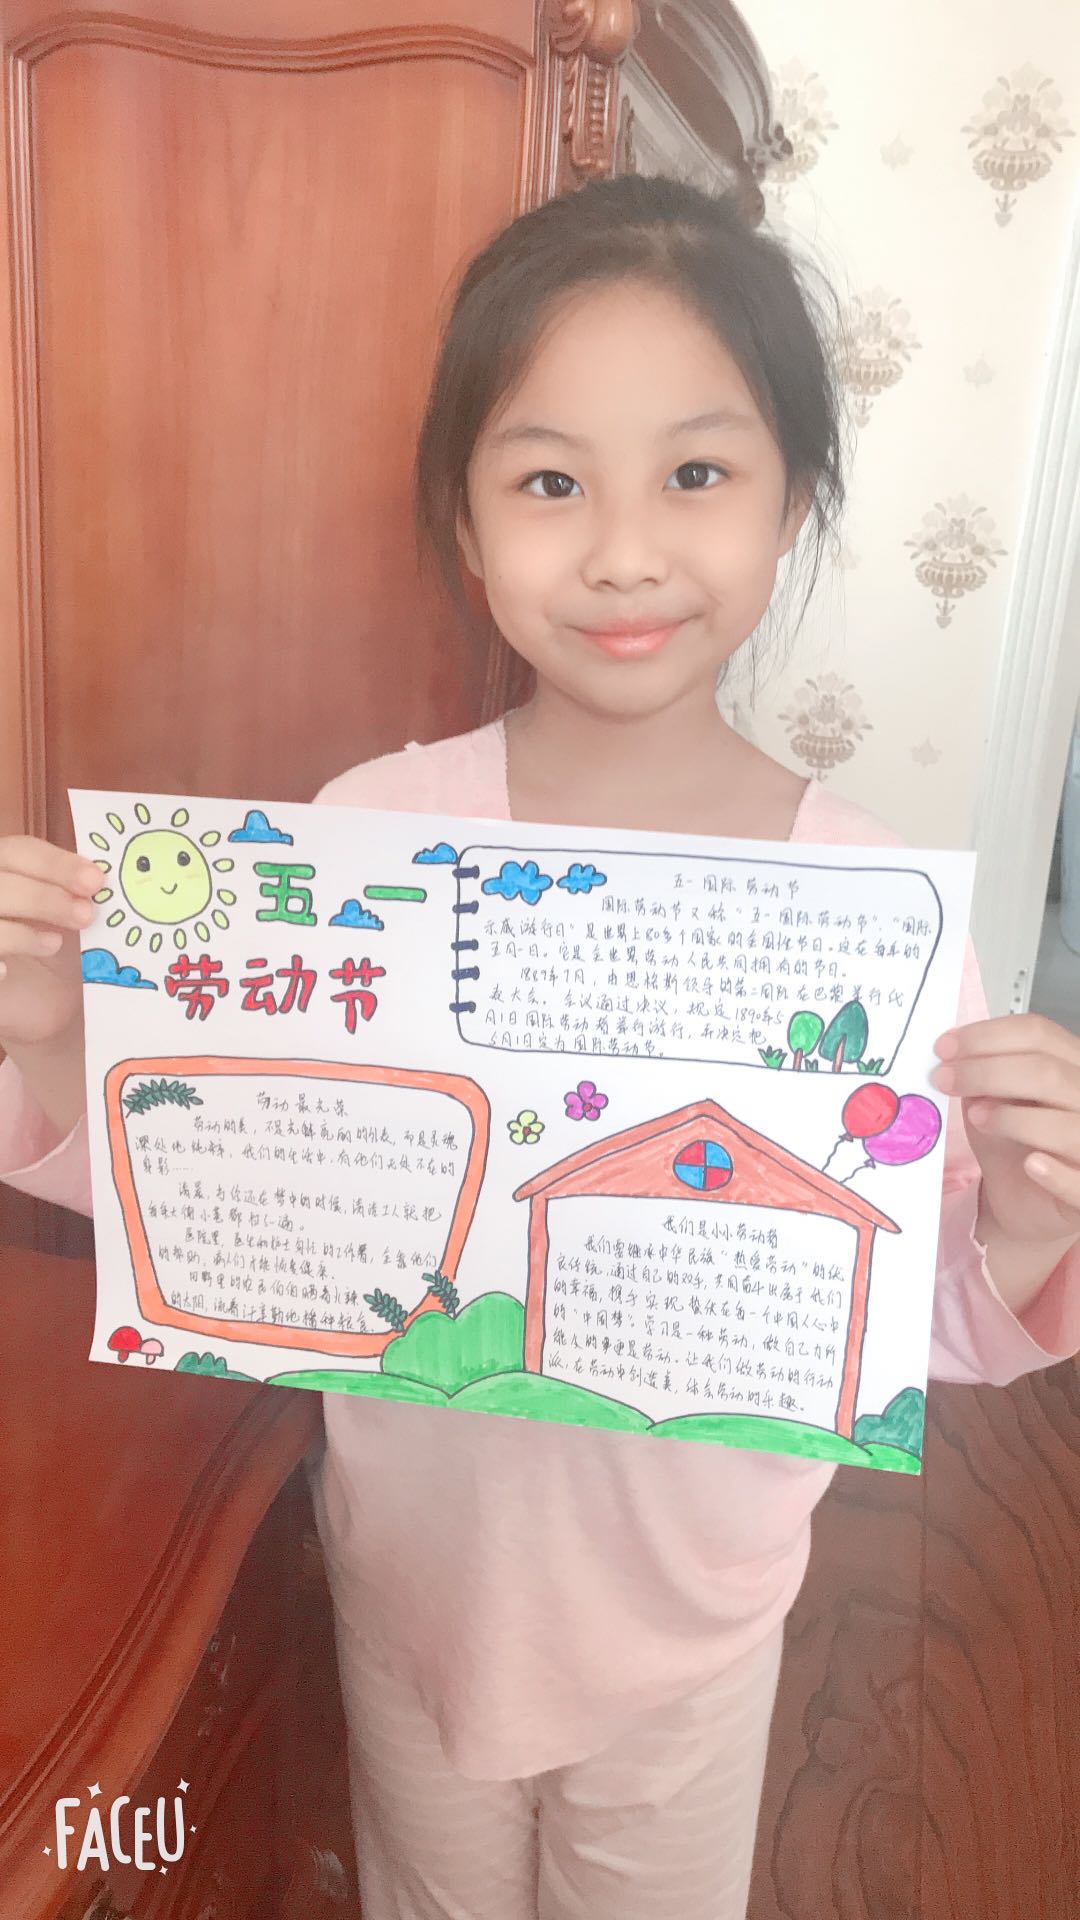 五一
劳动节
五一国际劳动节
国际劳动节又称“五一国际劳动节”、“国际
示威游行日”是世界上80多个国家的全国性节日。定在每年的
五月一日。它是全世界劳动人民共同拥有的节日。
1889年7月，由恩格斯领导的第二国际在巴黎举行代
表大会。会议通过决议，规定1890年5
月1日国际劳动者举行游行，并决定把
5月1日定为国际劳动节。
劳动最光荣
劳动的美，不是光鲜亮丽的外表，而是灵魂
深处地纯粹，我们的生活中，有他们无处不在的
身影……
清晨，当你还在梦中的时候，清洁工人就把
每条大街小巷都扫一遍。
医院里，医生和护士匆忙的工作着，全靠他们
的帮助，病人们才能恢复健康。
田野里的农民伯伯晒着火辣
的太阳，流着汗辛勤地播种粮食。
我们是小小劳动者
我们需继承中华民族“热爱劳动”的优
良传统，通过自己的双手，共同奋斗出属于我们
的幸福，携手实现蛰伏在每一个中国人心中
的“中国梦”。学习是一种劳动，做自己力所
能及的事更是劳动。让我们做劳动的行动
派，在劳动中创造美，体会劳动的乐趣。
FACEU